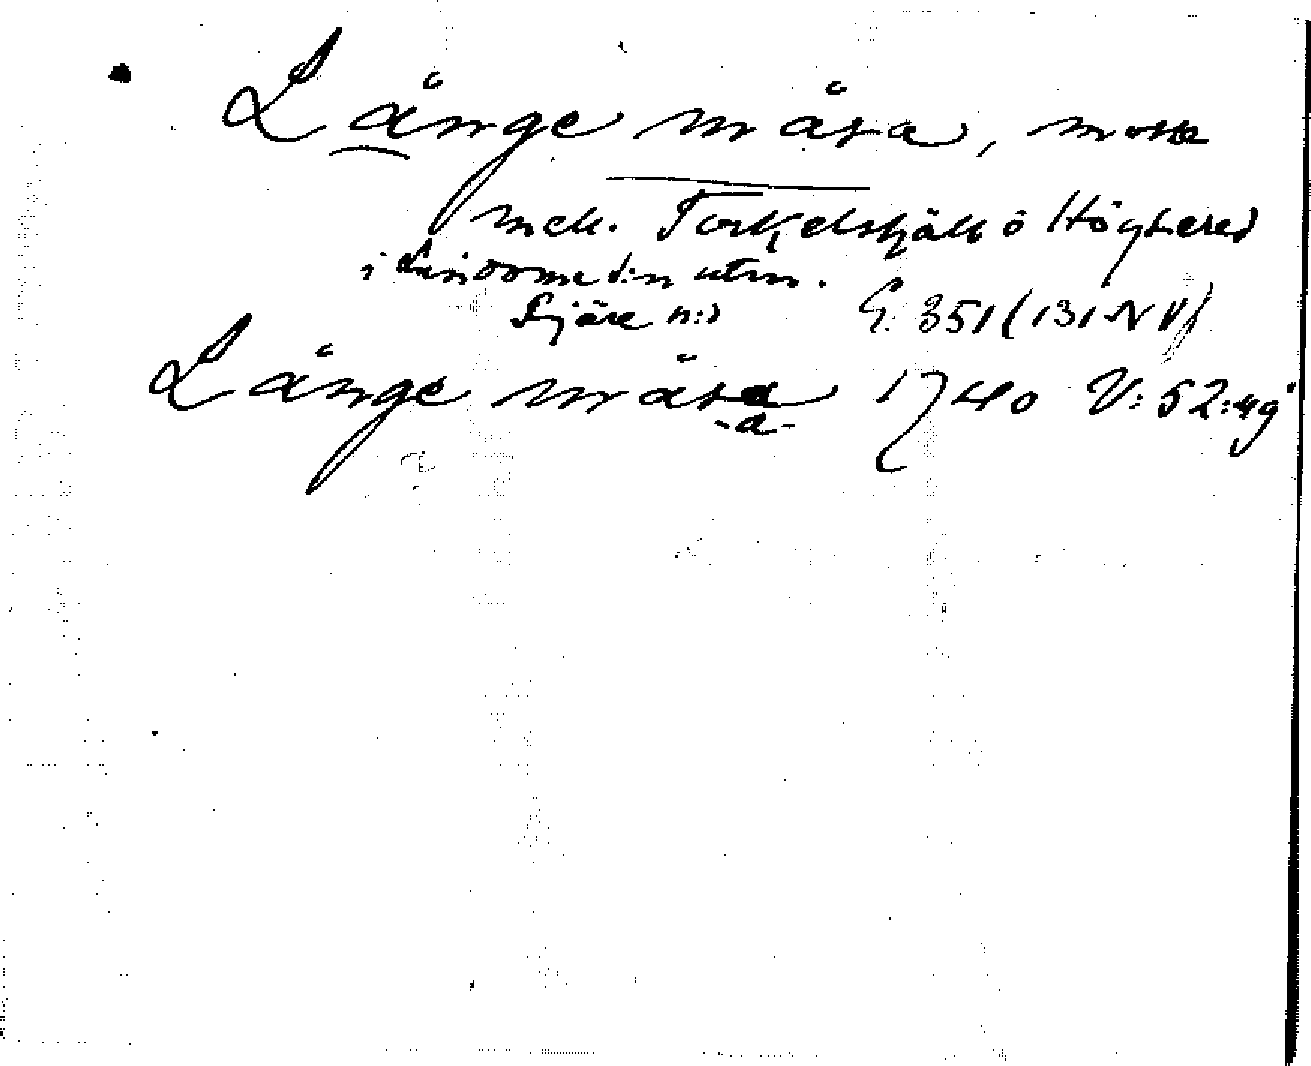 Långe måsa, mosse
mell. Torkelshjälls o Högsered
i Lindome s:n utm.
Fjäre h:d G. 351 (131 NV)
Långe måsa 1740 V: 52:49
-a-